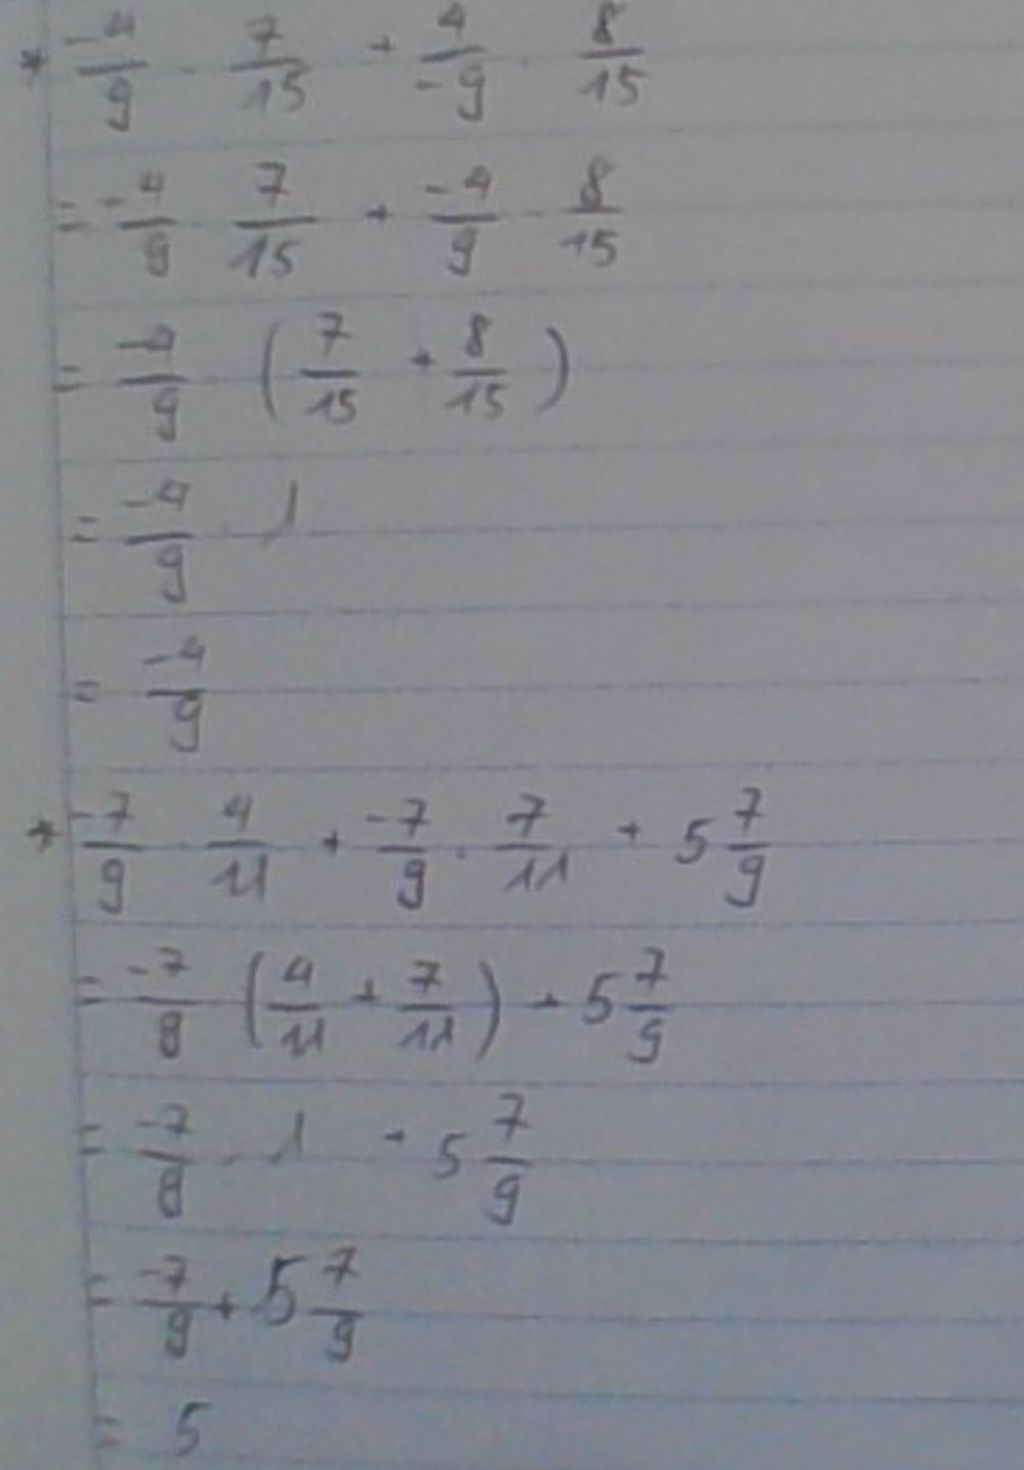 * -4/9 . 7/15 + 4/-9 . 8/15
= -4/9 . 7/15 + -4/9 . 8/15
= -4/9 (7/15 + 8/15)
= -4/9 . 1
= -4/9
* -7/9 . 4/11 + -7/9 . 7/11 + 5 7/9
= -7/9 (4/11 + 7/11) + 5 7/9
= -7/9 . 1 + 5 7/9
= -7/9 + 5 7/9
= 5